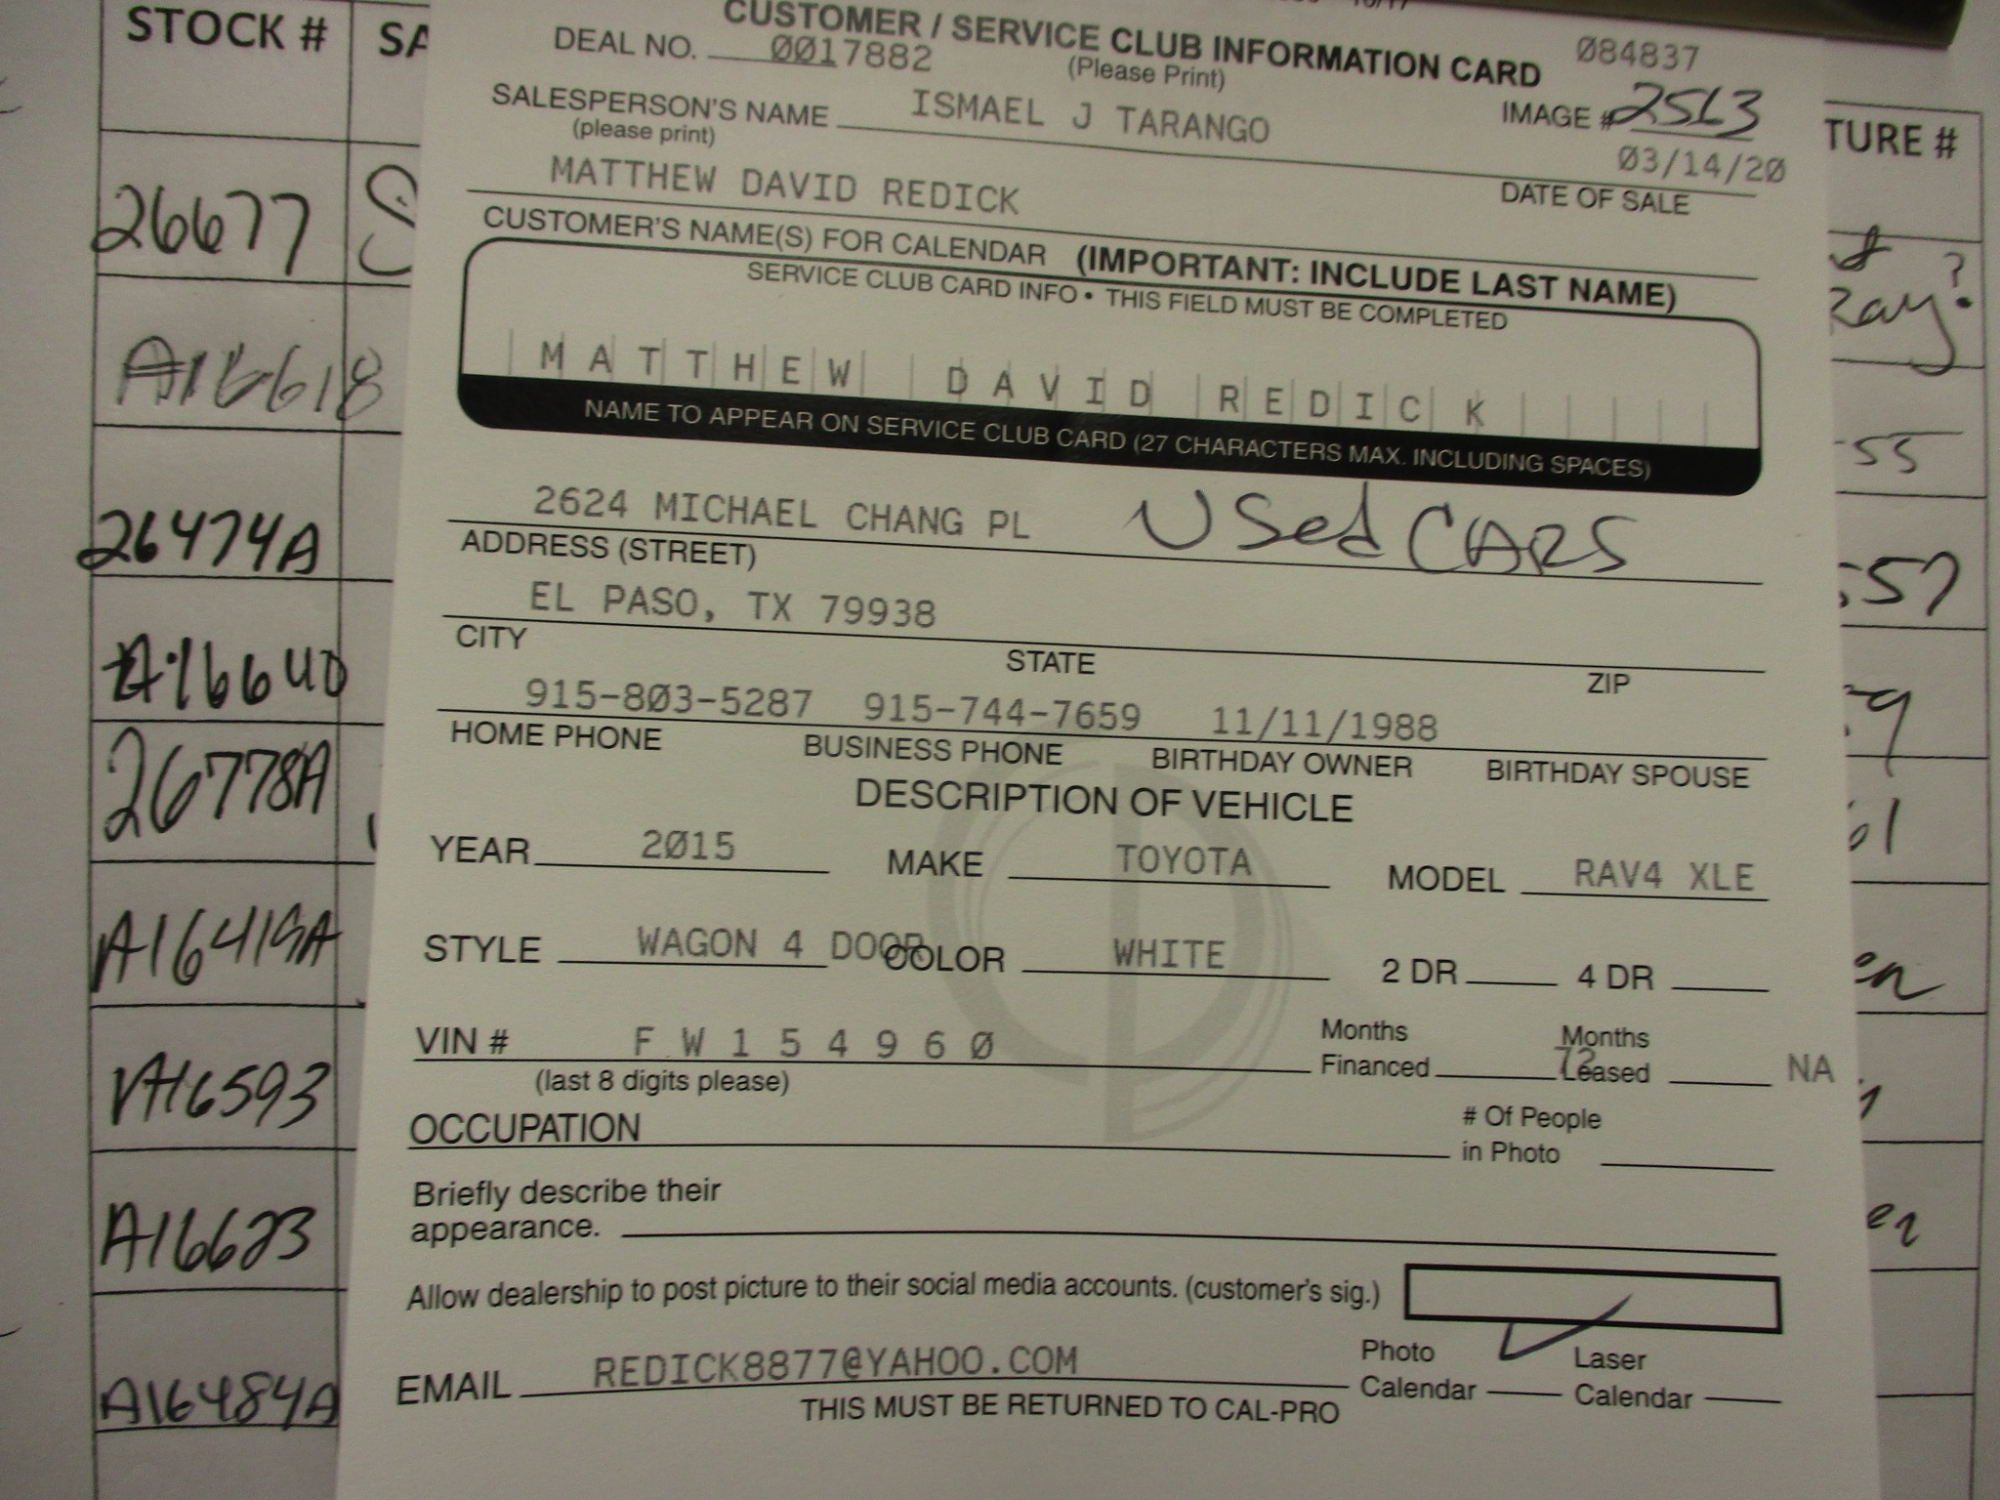 STOCK #
SA
26677
A16618
26474A
A16640
26778A
A16419A
A16593
A16623
A16484A
CUSTOMER / SERVICE CLUB INFORMATION CARD
084837
DEAL NO. 0017882
(Please Print)
SALESPERSON'S NAME ISMAEL J TARANGO
(please print)
IMAGE # 2563
03/14/20
MATTHEW DAVID REDICK
DATE OF SALE
CUSTOMER'S NAME(S) FOR CALENDAR (IMPORTANT: INCLUDE LAST NAME)
SERVICE CLUB CARD INFO • THIS FIELD MUST BE COMPLETED
MATTHEW DAVID REDICK
NAME TO APPEAR ON SERVICE CLUB CARD (27 CHARACTERS MAX. INCLUDING SPACES)
2624 MICHAEL CHANG PL Used CARS
ADDRESS (STREET)
EL PASO, TX 79938
CITY STATE ZIP
915-803-5287 915-744-7659 11/11/1988
HOME PHONE BUSINESS PHONE BIRTHDAY OWNER BIRTHDAY SPOUSE
DESCRIPTION OF VEHICLE
YEAR 2015 MAKE TOYOTA MODEL RAV4 XLE
STYLE WAGON 4 DOOR COLOR WHITE 2 DR 4 DR
VIN # F W 1 5 4 9 6 0
(last 8 digits please)
Months Financed 72
Months Leased NA
OCCUPATION
# Of People
in Photo
Briefly describe their
appearance.
Allow dealership to post picture to their social media accounts. (customer's sig.)
EMAIL REDICK8877@YAHOO.COM
Photo Calendar
Laser Calendar
THIS MUST BE RETURNED TO CAL-PRO
TURE #
Ray?
-55
:57